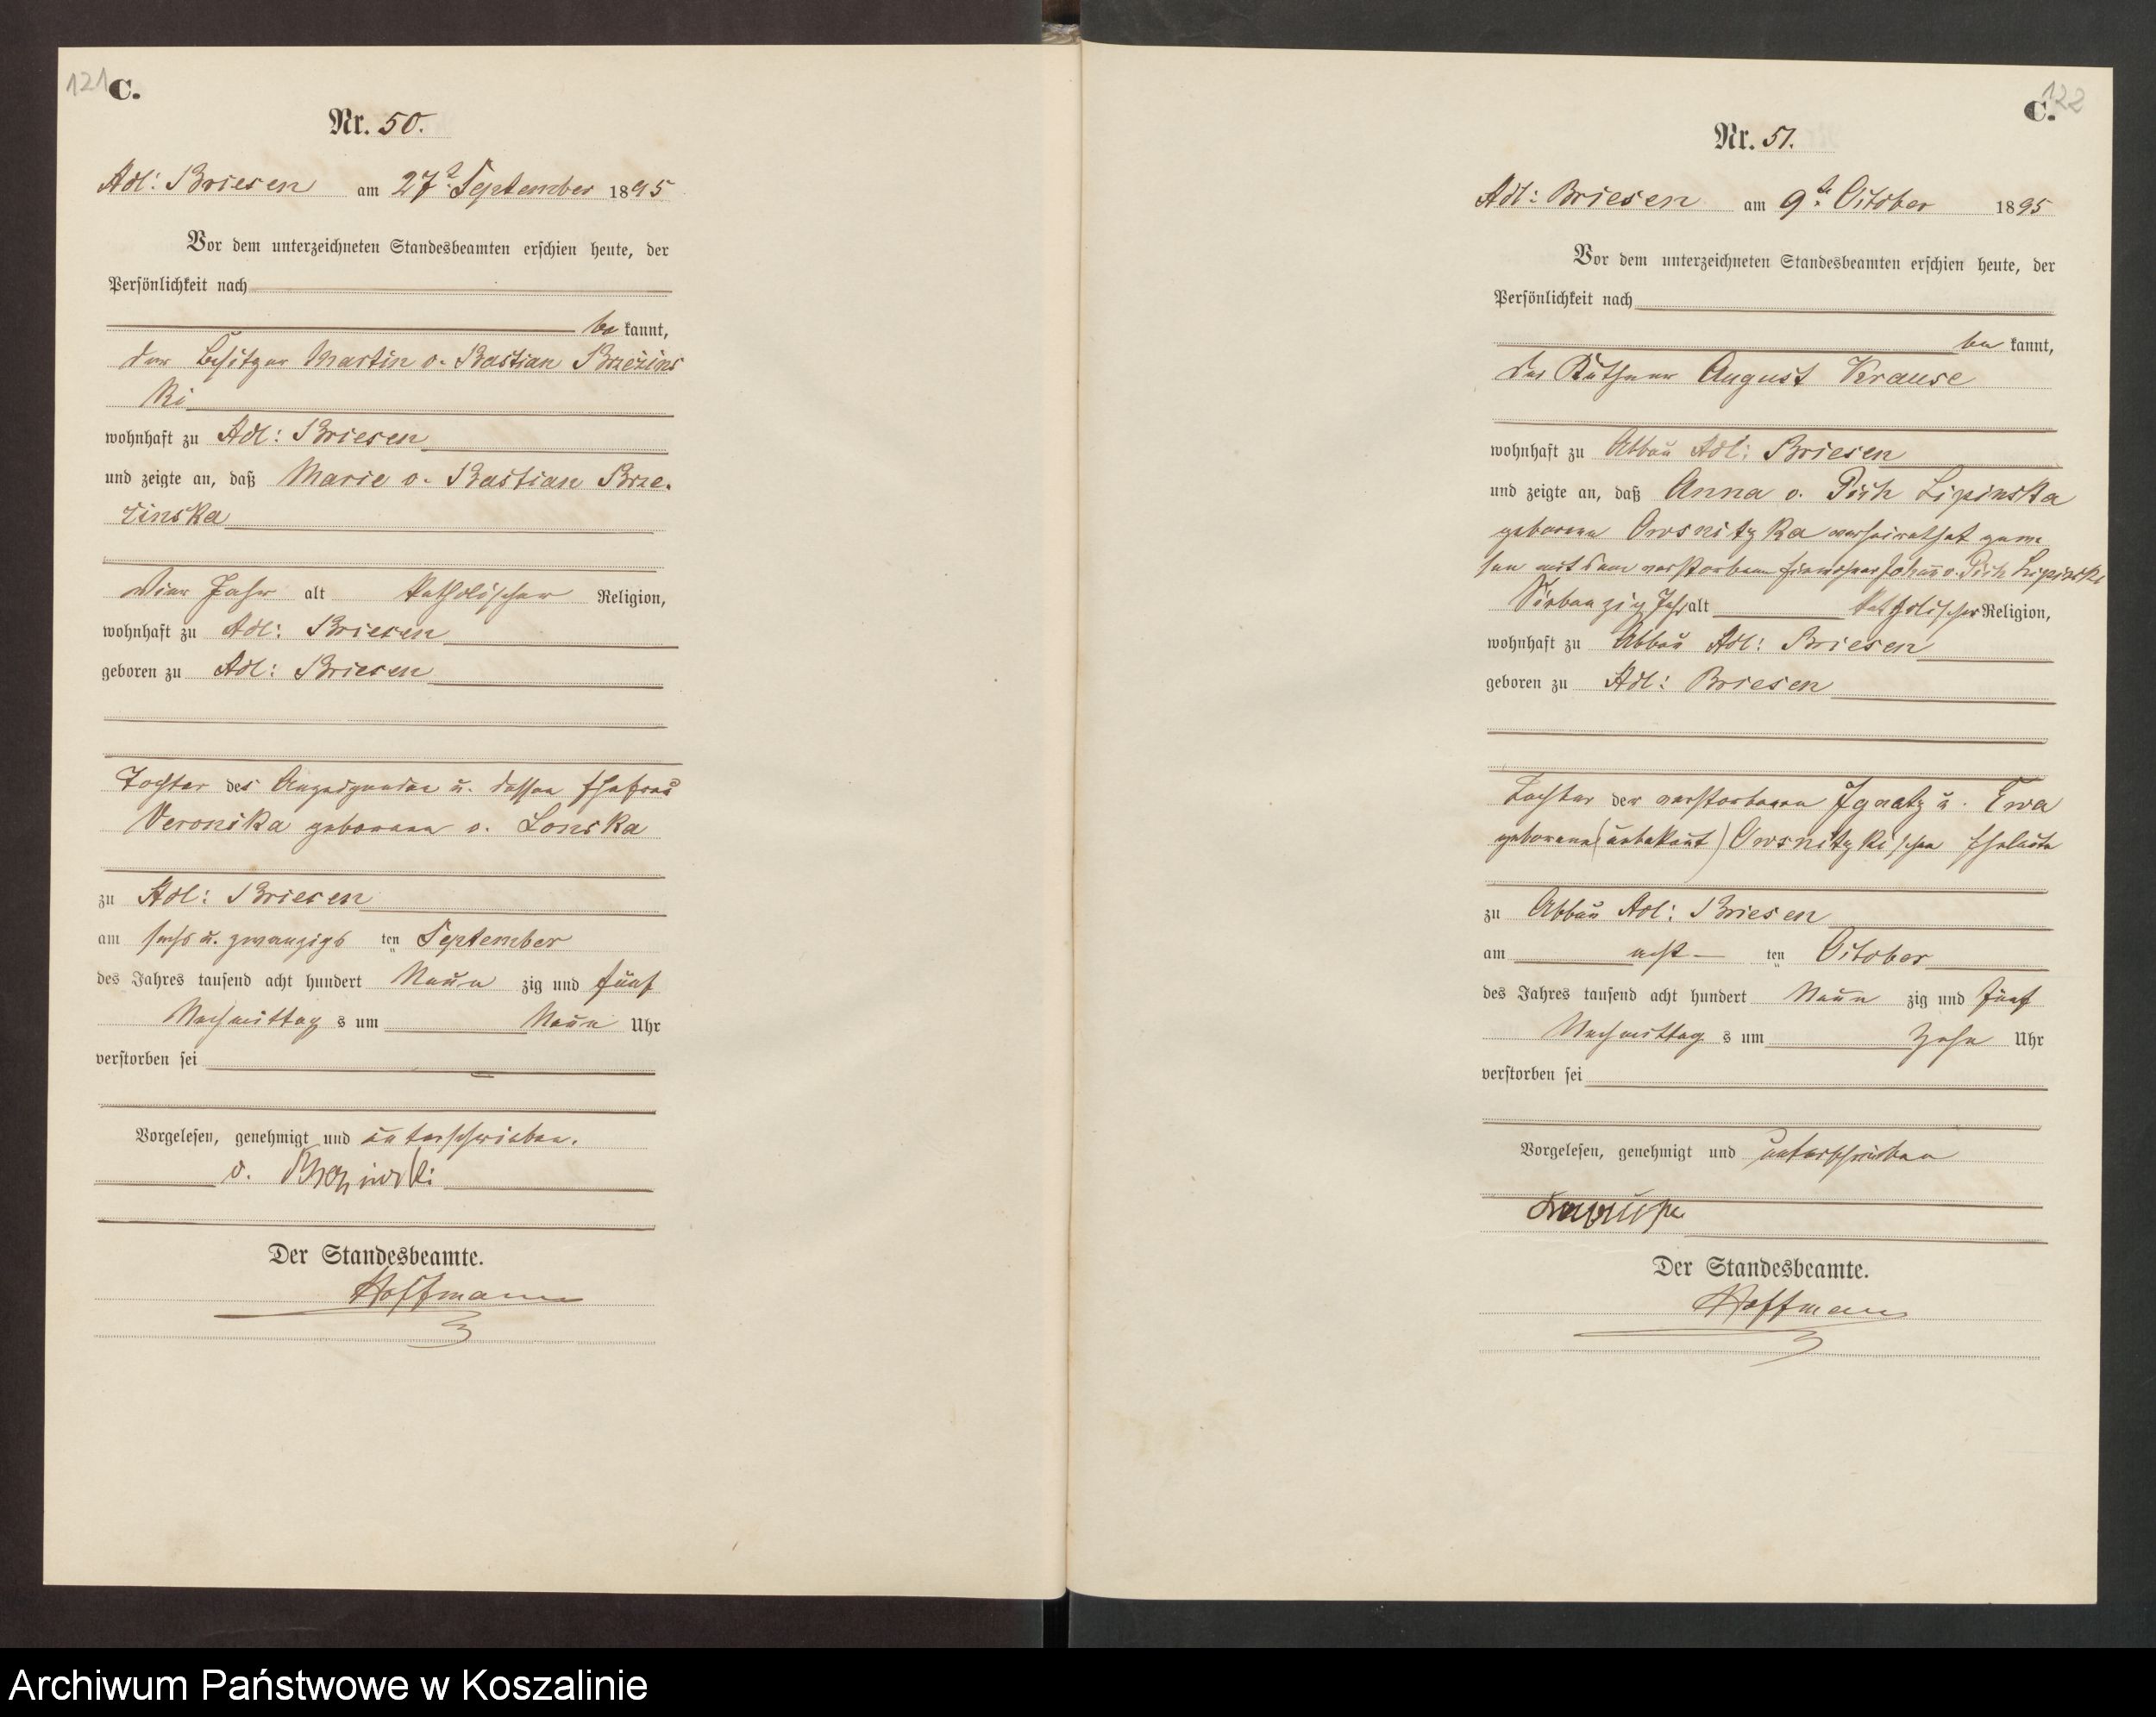 121
C.
Nr. 50.
Adl: Briesen am 27t September 1895
Vor dem unterzeichneten Standesbeamten erschien heute, der
Persönlichkeit nach
be kannt,
der Besitzer Martin v. Bastian Brzezins
ki
wohnhaft zu Adl: Briesen
und zeigte an, daß Marie v. Bastian Brze-
zinska
Vier Jahr alt katholischer Religion,
wohnhaft zu Adl: Briesen
geboren zu Adl: Briesen
Tochter des Anzeigenden u. dessen Ehefrau
Veronika geborenen v. Lonska
zu Adl: Briesen
am sechs u. zwanzigs ten September
des Jahres tausend acht hundert Neun zig und fünf
Nachmittag s um Neun Uhr
verstorben sei
Vorgelesen, genehmigt und unterschrieben.
v. Brzezinski
Der Standesbeamte.
Hoffmann
122
C.
Nr. 51.
Adl: Briesen am 9te October 1895
Vor dem unterzeichneten Standesbeamten erschien heute, der
Persönlichkeit nach
be kannt,
der Käthner August Krause
wohnhaft zu Abbau Adl: Briesen
und zeigte an, daß Anna v. Pich Lipinska
geborene Owsnitzka verheirathet gewe
sen mit dem verstorbenen Johann v. Pich Lipinski
Siebenzig Jahr alt katholischer Religion,
wohnhaft zu Abbau Adl: Briesen
geboren zu Adl: Briesen
Tochter der verstorbenen Ignatz u. Ewa
geborene (unbekant) Owsnitzkischen Eheleute
zu Abbau Adl: Briesen
am acht ten October
des Jahres tausend acht hundert Neun zig und fünf
Nachmittag s um Zehn Uhr
verstorben sei
Vorgelesen, genehmigt und unterschrieben
Krause
Der Standesbeamte.
Hoffmann
Archiwum Państwowe w Koszalinie